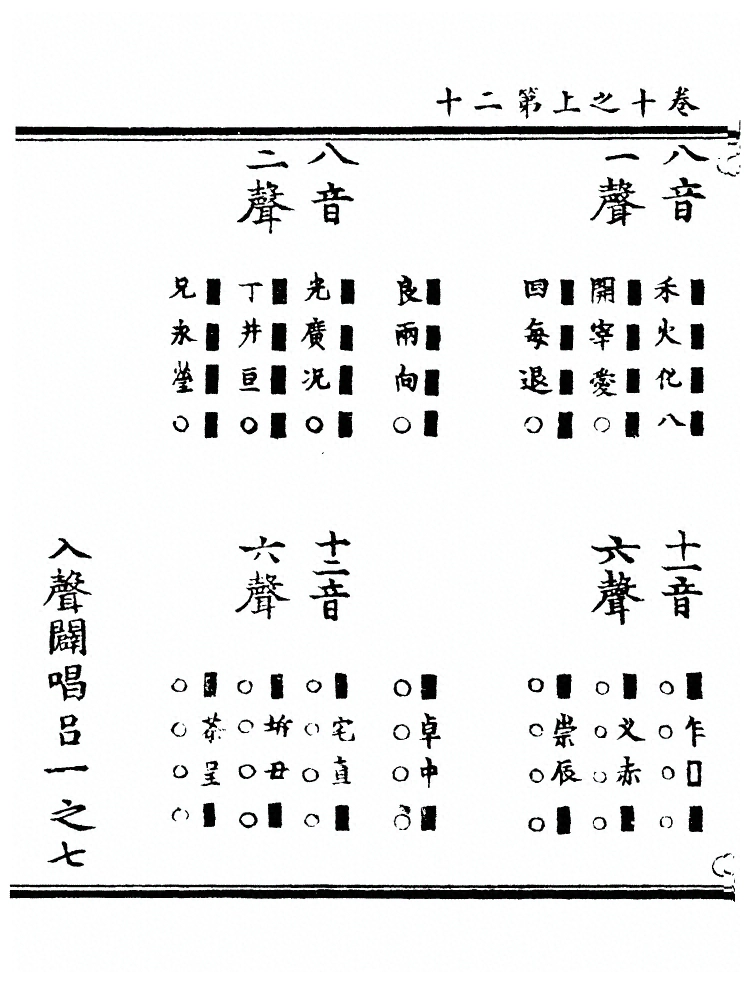 卷十之上第二十
八音
一聲
■■■■
禾火化八
■■■■
開宰愛○
■■■■
回每退○
■■■■
良兩向○
八音
二聲
■■■■
光廣况○
■■■■
丁井亘○
■■■■
兄永瑩○
十一音
六聲
■乍□■
○○○○
■乂赤■
○○○○
■崇辰■
○○○○
■卓中■
○○○○
十二音
六聲
■宅直■
○○○○
■坼丑■
○○○○
■茶呈■
○○○○
入聲闢唱呂一之七